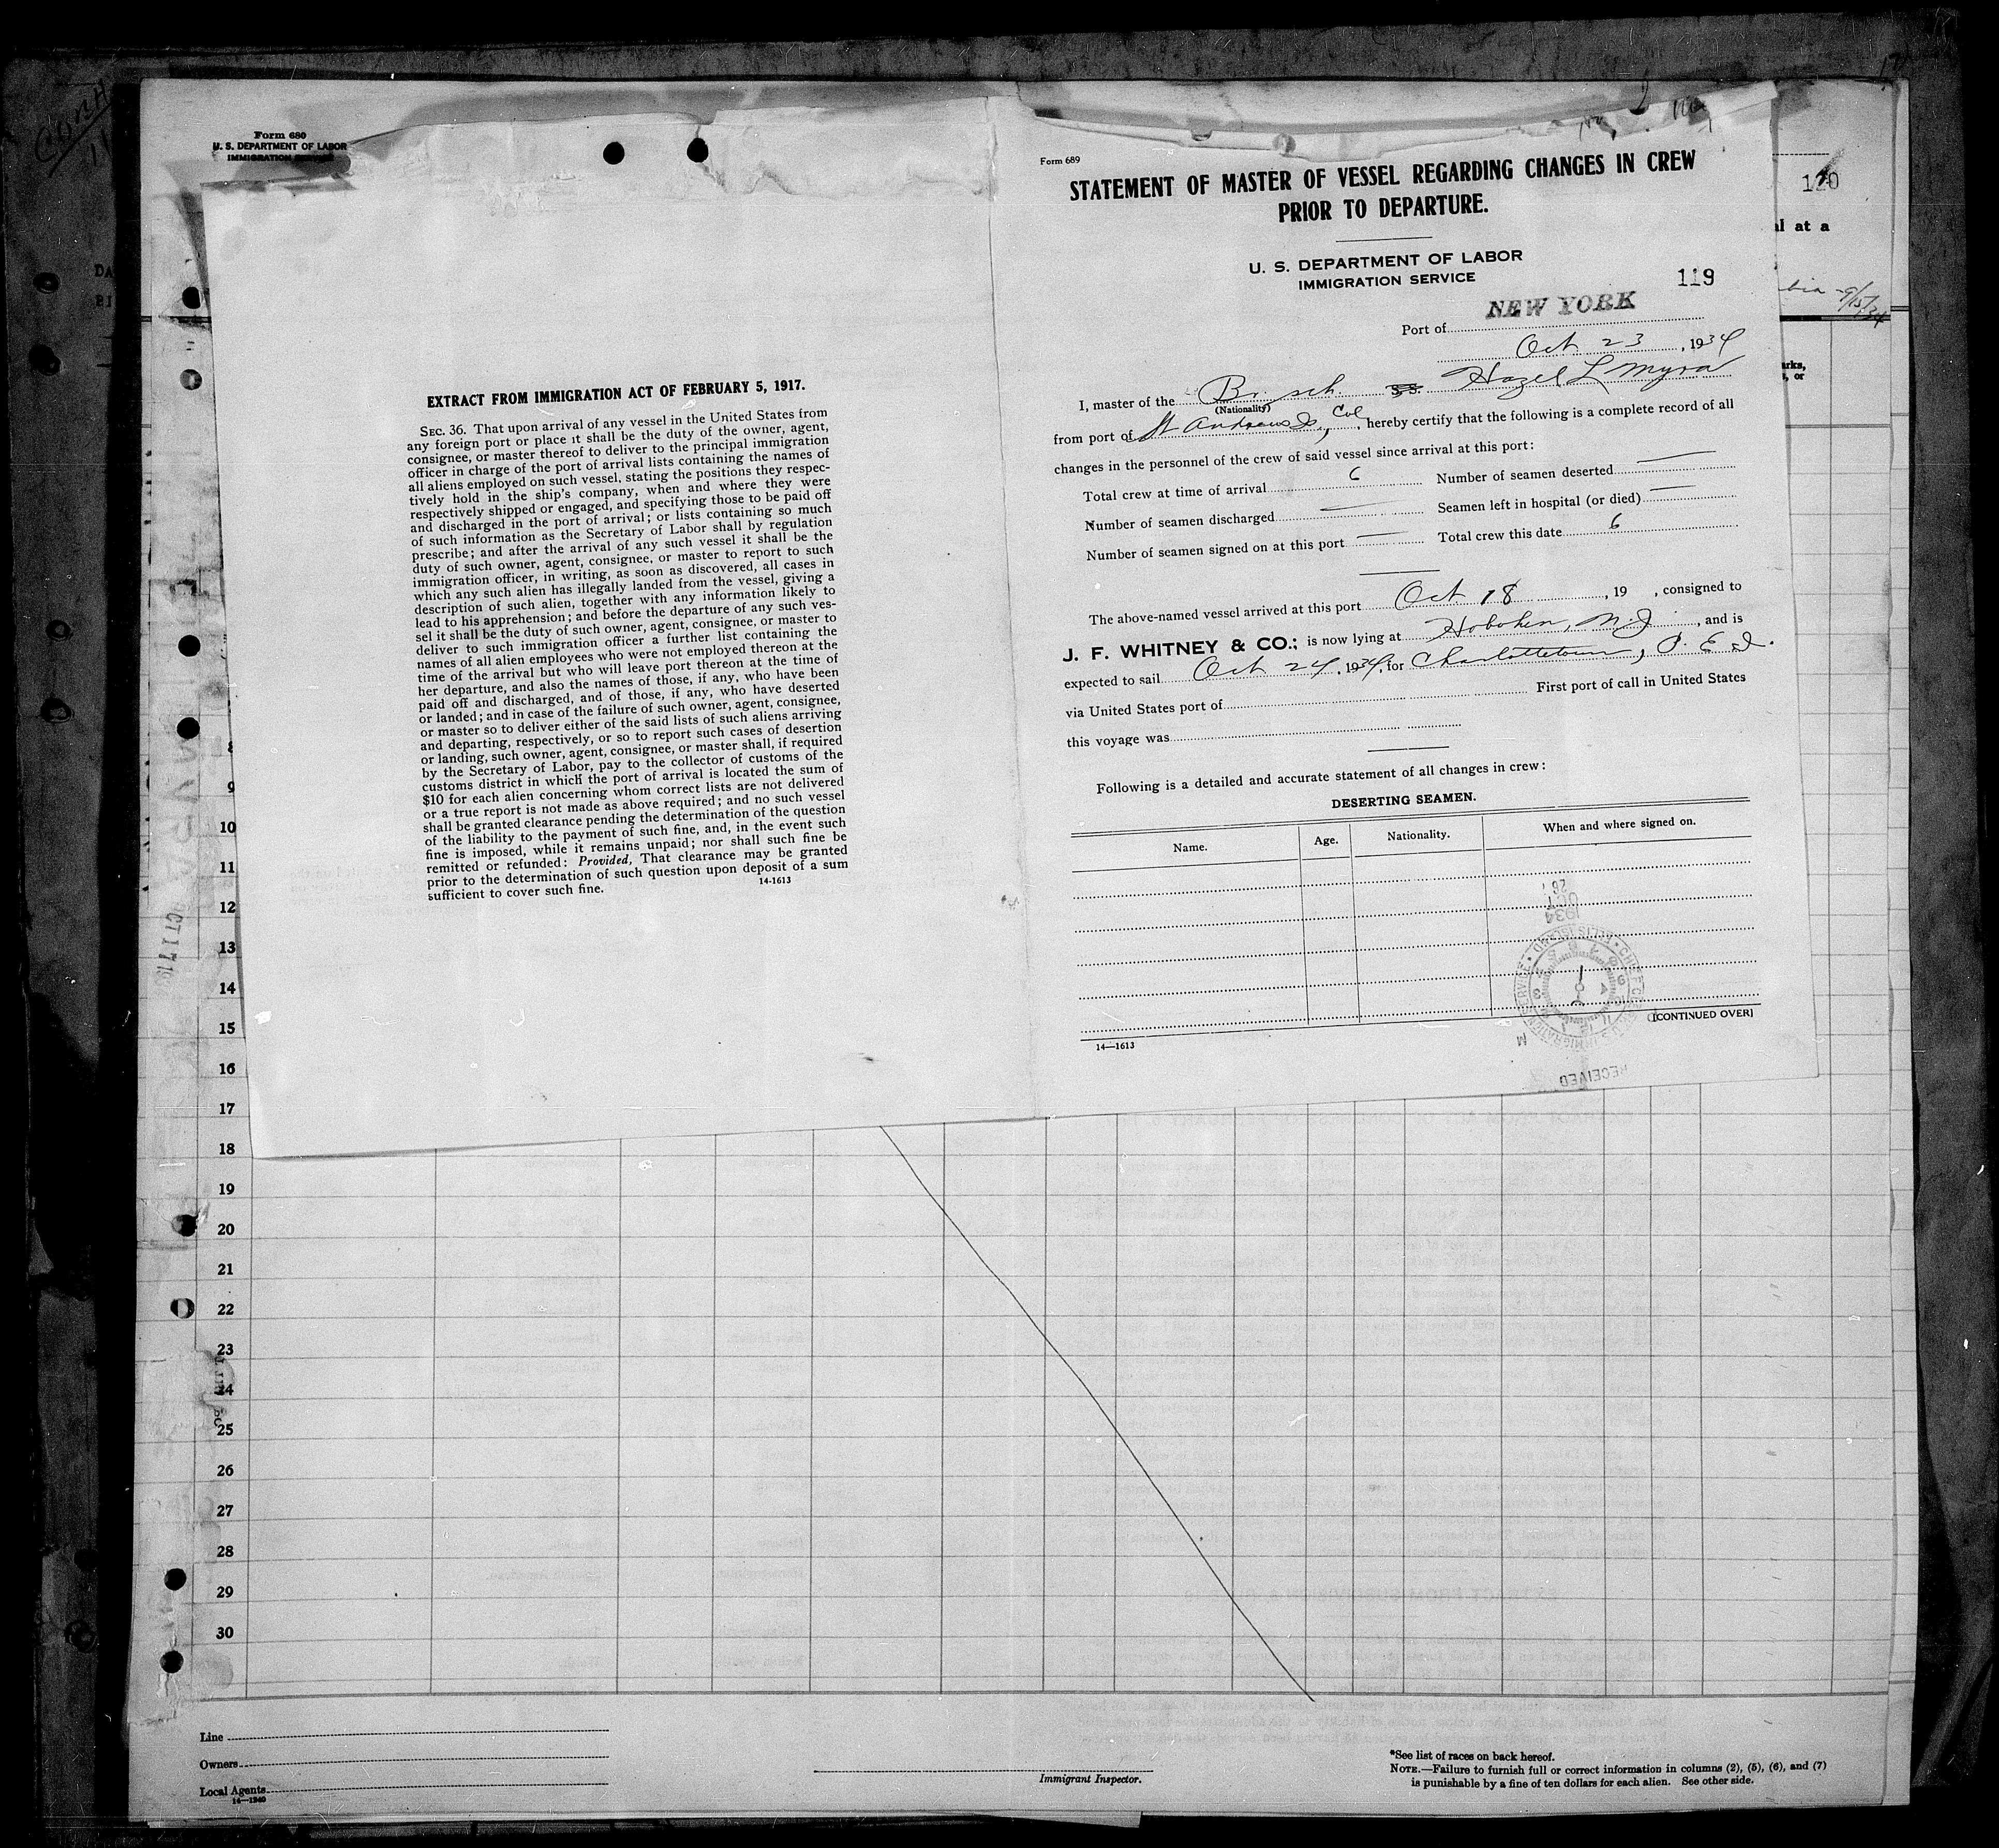 CONH
11
Form 680
U. S. DEPARTMENT OF LABOR
IMMIGRATION SERVICE
EXTRACT FROM IMMIGRATION ACT OF FEBRUARY 5, 1917.
SEC. 36. That upon arrival of any vessel in the United States from
any foreign port or place it shall be the duty of the owner, agent,
consignee, or master thereof to deliver to the principal immigration
officer in charge of the port of arrival lists containing the names of
all aliens employed on such vessel, stating the positions they respec-
tively hold in the ship's company, when and where they were
respectively shipped or engaged, and specifying those to be paid off
and discharged in the port of arrival; or lists containing so much
of such information as the Secretary of Labor shall by regulation
prescribe; and after the arrival of any such vessel it shall be the
duty of such owner, agent, consignee, or master to report to such
immigration officer, in writing, as soon as discovered, all cases in
which any such alien has illegally landed from the vessel, giving a
description of such alien, together with any information likely to
lead to his apprehension; and before the departure of any such ves-
sel it shall be the duty of such owner, agent, consignee, or master to
deliver to such immigration officer a further list containing the
names of all alien employees who were not employed thereon at the
time of the arrival but who will leave port thereon at the time of
her departure, and also the names of those, if any, who have been
paid off and discharged, and of those, if any, who have deserted
or landed; and in case of the failure of such owner, agent, consignee,
or master so to deliver either of the said lists of such aliens arriving
and departing, respectively, or so to report such cases of desertion
or landing, such owner, agent, consignee, or master shall, if required
by the Secretary of Labor, pay to the collector of customs of the
customs district in which the port of arrival is located the sum of
$10 for each alien concerning whom correct lists are not delivered
or a true report is not made as above required; and no such vessel
shall be granted clearance pending the determination of the question
of the liability to the payment of such fine, and, in the event such
fine is imposed, while it remains unpaid; nor shall such fine be
remitted or refunded: Provided, That clearance may be granted
prior to the determination of such question upon deposit of a sum
sufficient to cover such fine.
14-1613
Form 689
STATEMENT OF MASTER OF VESSEL REGARDING CHANGES IN CREW
PRIOR TO DEPARTURE.
U. S. DEPARTMENT OF LABOR
IMMIGRATION SERVICE
119
Port of NEW YORK
Oct 23, 1934
I, master of the Br. sch. SS. Hazel L Myra
(Nationality)
from port of St Andrews Is, Col, hereby certify that the following is a complete record of all
changes in the personnel of the crew of said vessel since arrival at this port:
Total crew at time of arrival 6 Number of seamen deserted —
Number of seamen discharged — Seamen left in hospital (or died) —
Number of seamen signed on at this port — Total crew this date 6
The above-named vessel arrived at this port Oct 18, 19 , consigned to
J. F. WHITNEY & CO.; is now lying at Hoboken, N.J, and is
expected to sail Oct 24, 1934, for Charlottetown, P. E. I.
via United States port of First port of call in United States
this voyage was
Following is a detailed and accurate statement of all changes in crew:
DESERTING SEAMEN.
Name. Age. Nationality. When and where signed on.
OCT 26
1934
RECEIVED
(CONTINUED OVER)
14—1613
120
al at a
bia - 9/15/34
arks,
s, or
8
9
10
11
12
13
14
15
16
17
18
19
20
21
22
23
24
25
26
27
28
29
30
Line
Owners
Local Agents
14—1240
Immigrant Inspector.
*See list of races on back hereof.
NOTE.—Failure to furnish full or correct information in columns (2), (5), (6), and (7)
is punishable by a fine of ten dollars for each alien. See other side.